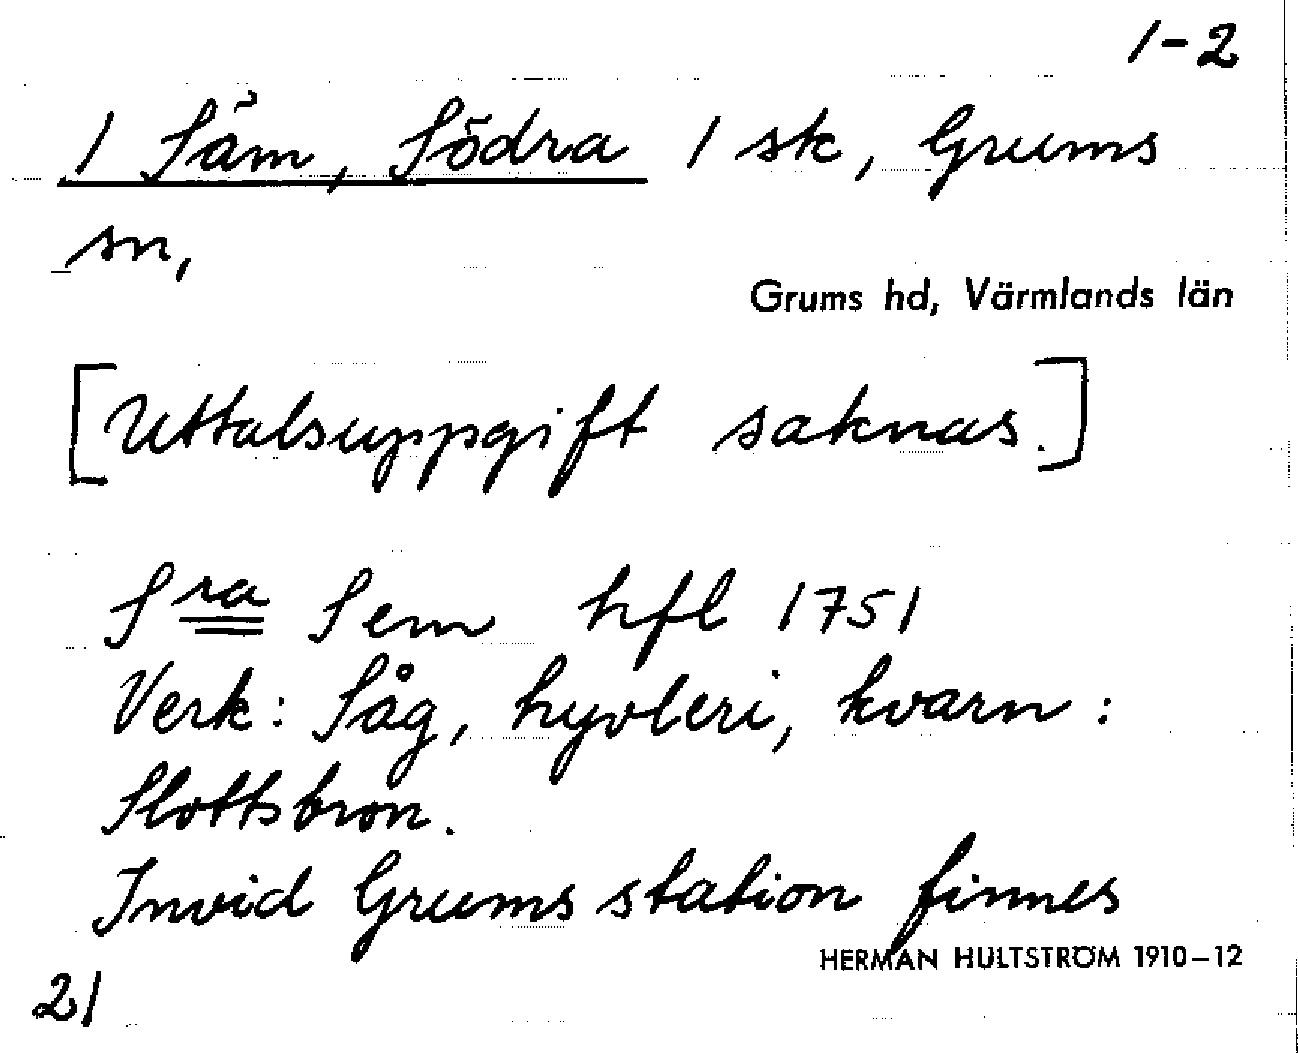 1-2
1 Säm, Södra 1 sk, Grums
sn,
Grums hd, Värmlands län
[Uttalsuppgift saknas.]
Sra Sem hfl 1751
Verk: Såg, hyvleri, kvarn:
Slottsbron.
Invid Grums station finnes
HERMAN HULTSTRÖM 1910–12
21